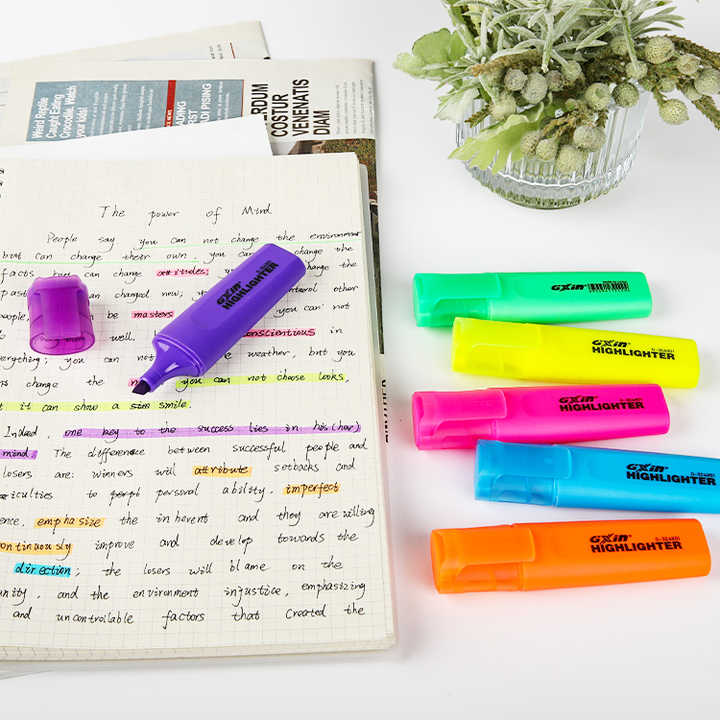 Weird Reptile
Caught Eating
Crocodile. Watch
your kids!
COSTUR
VENENATIS
DIAM
The power of Mind
People say you can not change the environment
but can change their own. you can change the
facts but can change attitudes; change the
past can changed new; you control other
people, can be masters you can not
well. conscientious in
everything; you can not weather, but you
can change the you can not choose looks,
but it can show a smile.
Indeed, one key to the success lies in his (her)
mind. The difference between successful people and
losers are: winners will attribute setbacks and
to personal ability. imperfect
emphasize the inherent and they are willing
continuously improve and develop towards the
direction; the losers will blame on the
and the environment injustice, emphasizing
and uncontrollable factors that created the
GXin
HIGHLIGHTER
GXin
GXin
HIGHLIGHTER
GXin
HIGHLIGHTER
GXin
HIGHLIGHTER
GXin
HIGHLIGHTER